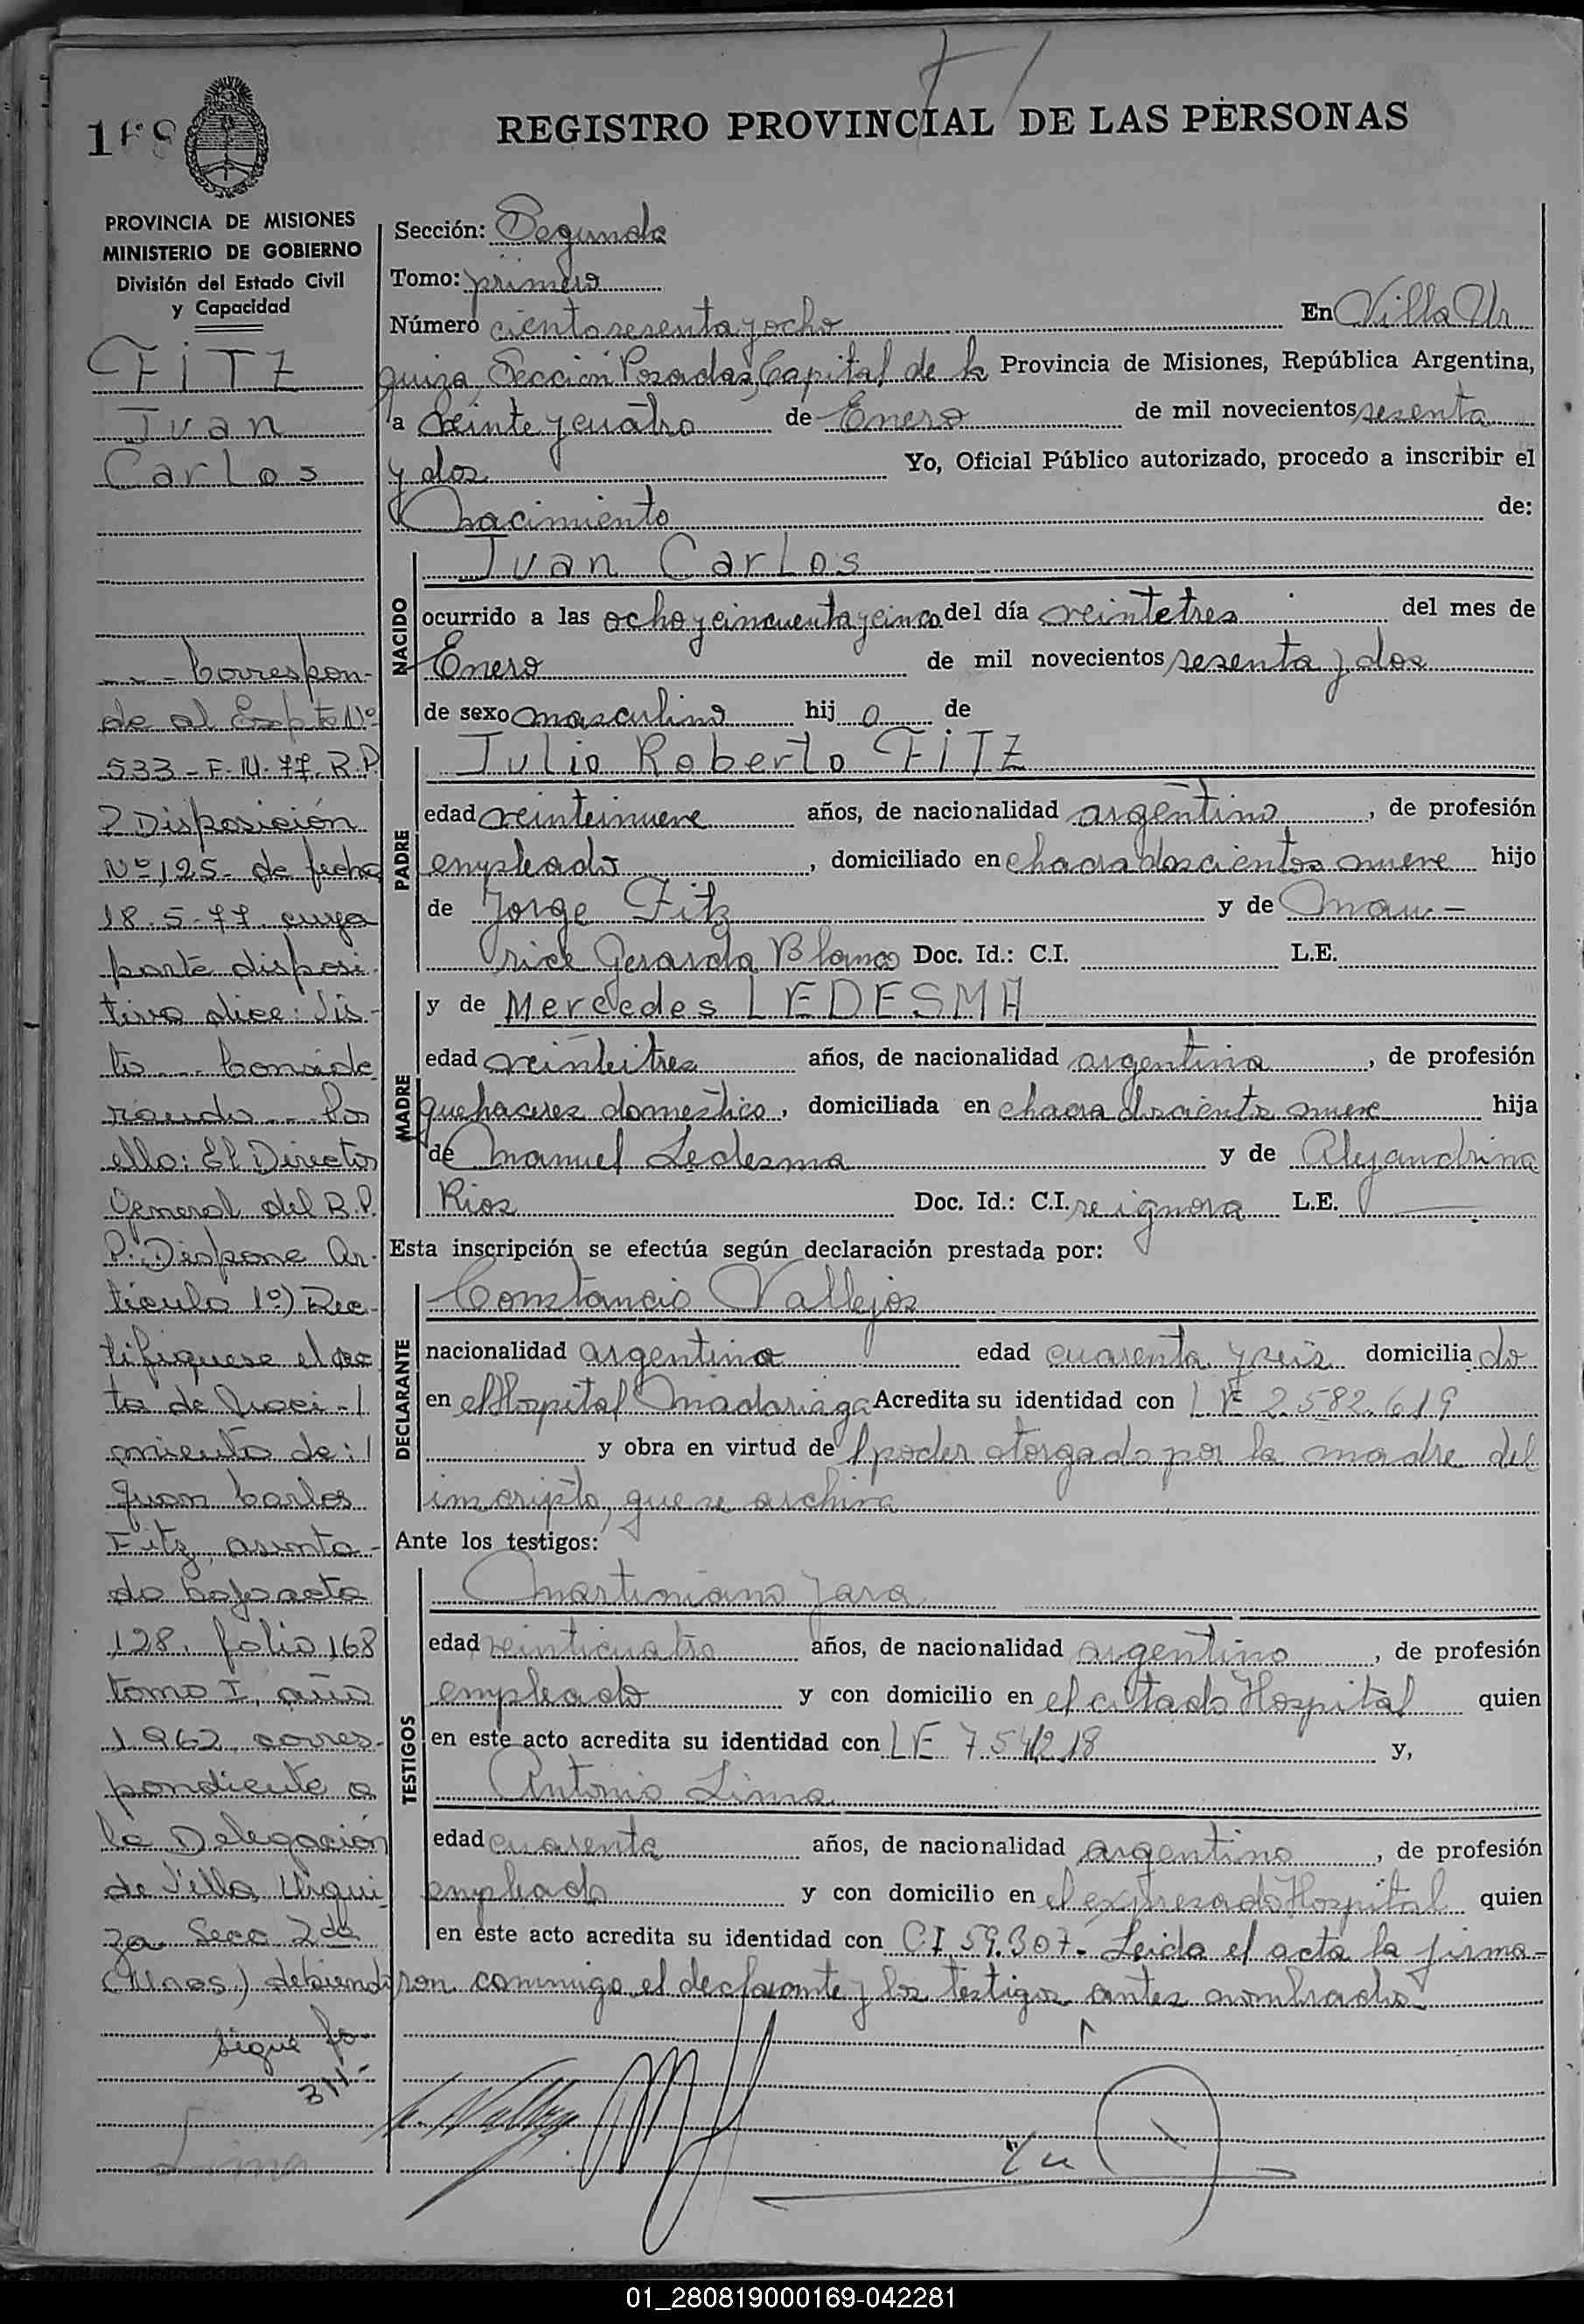 168
REGISTRO PROVINCIAL DE LAS PERSONAS
PROVINCIA DE MISIONES
MINISTERIO DE GOBIERNO
División del Estado Civil
y Capacidad
FITZ
Juan
Carlos
- - - Correspon-
de al Expte Nº
533-F-M-77-R.P.
2 Disposición
Nº 125- de fecha
18-5-77 cuya
parte disposi-
tiva dice: Vis-
to --- Conside-
rando -- Por
ello: El Director
General del R.P.
P. Dispone Ar-
tículo 1º) Rec-
tifiquese el ac
ta de Naci-
miento de:
Juan Carlos
Fitz, asenta-
do bajo acta
128, folio 168
tomo I, año
1962 corres-
pondiente a
la Delegación
de Villa Urqui
za Secc 2da
(Mnes.) debiend
sigue fo
311-
Lima
Sección: Segunda
Tomo: primero
Número ciento sesenta y ocho En Villa Ur
quiza, Sección Posadas, Capital de la Provincia de Misiones, República Argentina,
a veinte y cuatro de Enero de mil novecientos sesenta
y dos Yo, Oficial Público autorizado, procedo a inscribir el
Nacimiento de:
NACIDO
Juan Carlos
ocurrido a las ocho y cincuenta y cinco del día veintetres del mes de
Enero de mil novecientos sesenta y dos
de sexo masculino hij o de
PADRE
Julio Roberto FITZ
edad veinteinueve años, de nacionalidad argentino, de profesión
empleado, domiciliado en chacra doscientos nueve hijo
de Jorge Fitz y de Mau-
rice Gerarda Blanco Doc. Id.: C.I. L.E.
MADRE
y de Mercedes LEDESMA
edad veinteitres años, de nacionalidad argentina, de profesión
quehaceres domestico, domiciliada en chacra doscientos nueve hija
de Manuel Ledesma y de Alejandrina
Rios Doc. Id.: C.I. se ignora L.E.
Esta inscripción se efectúa según declaración prestada por:
DECLARANTE
Constancio Vallejos
nacionalidad argentina edad cuarenta y seis domicilia do
en el Hospital Madariaga Acredita su identidad con LE 2.582.619
y obra en virtud del poder otorgado por la madre del
inscripto, que se archiva
Ante los testigos:
TESTIGOS
Martiniano Jara
edad veinticuatro años, de nacionalidad argentino, de profesión
empleado y con domicilio en el citado Hospital quien
en este acto acredita su identidad con LE 7.541218 y,
Antonio Lima
edad cuarenta años, de nacionalidad argentino, de profesión
empleado y con domicilio en el expresado Hospital quien
en este acto acredita su identidad con CI 59.307- Leida el acta la firma-
ron conmigo el declarante y los testigos antes nombrados
01_280819000169-042281